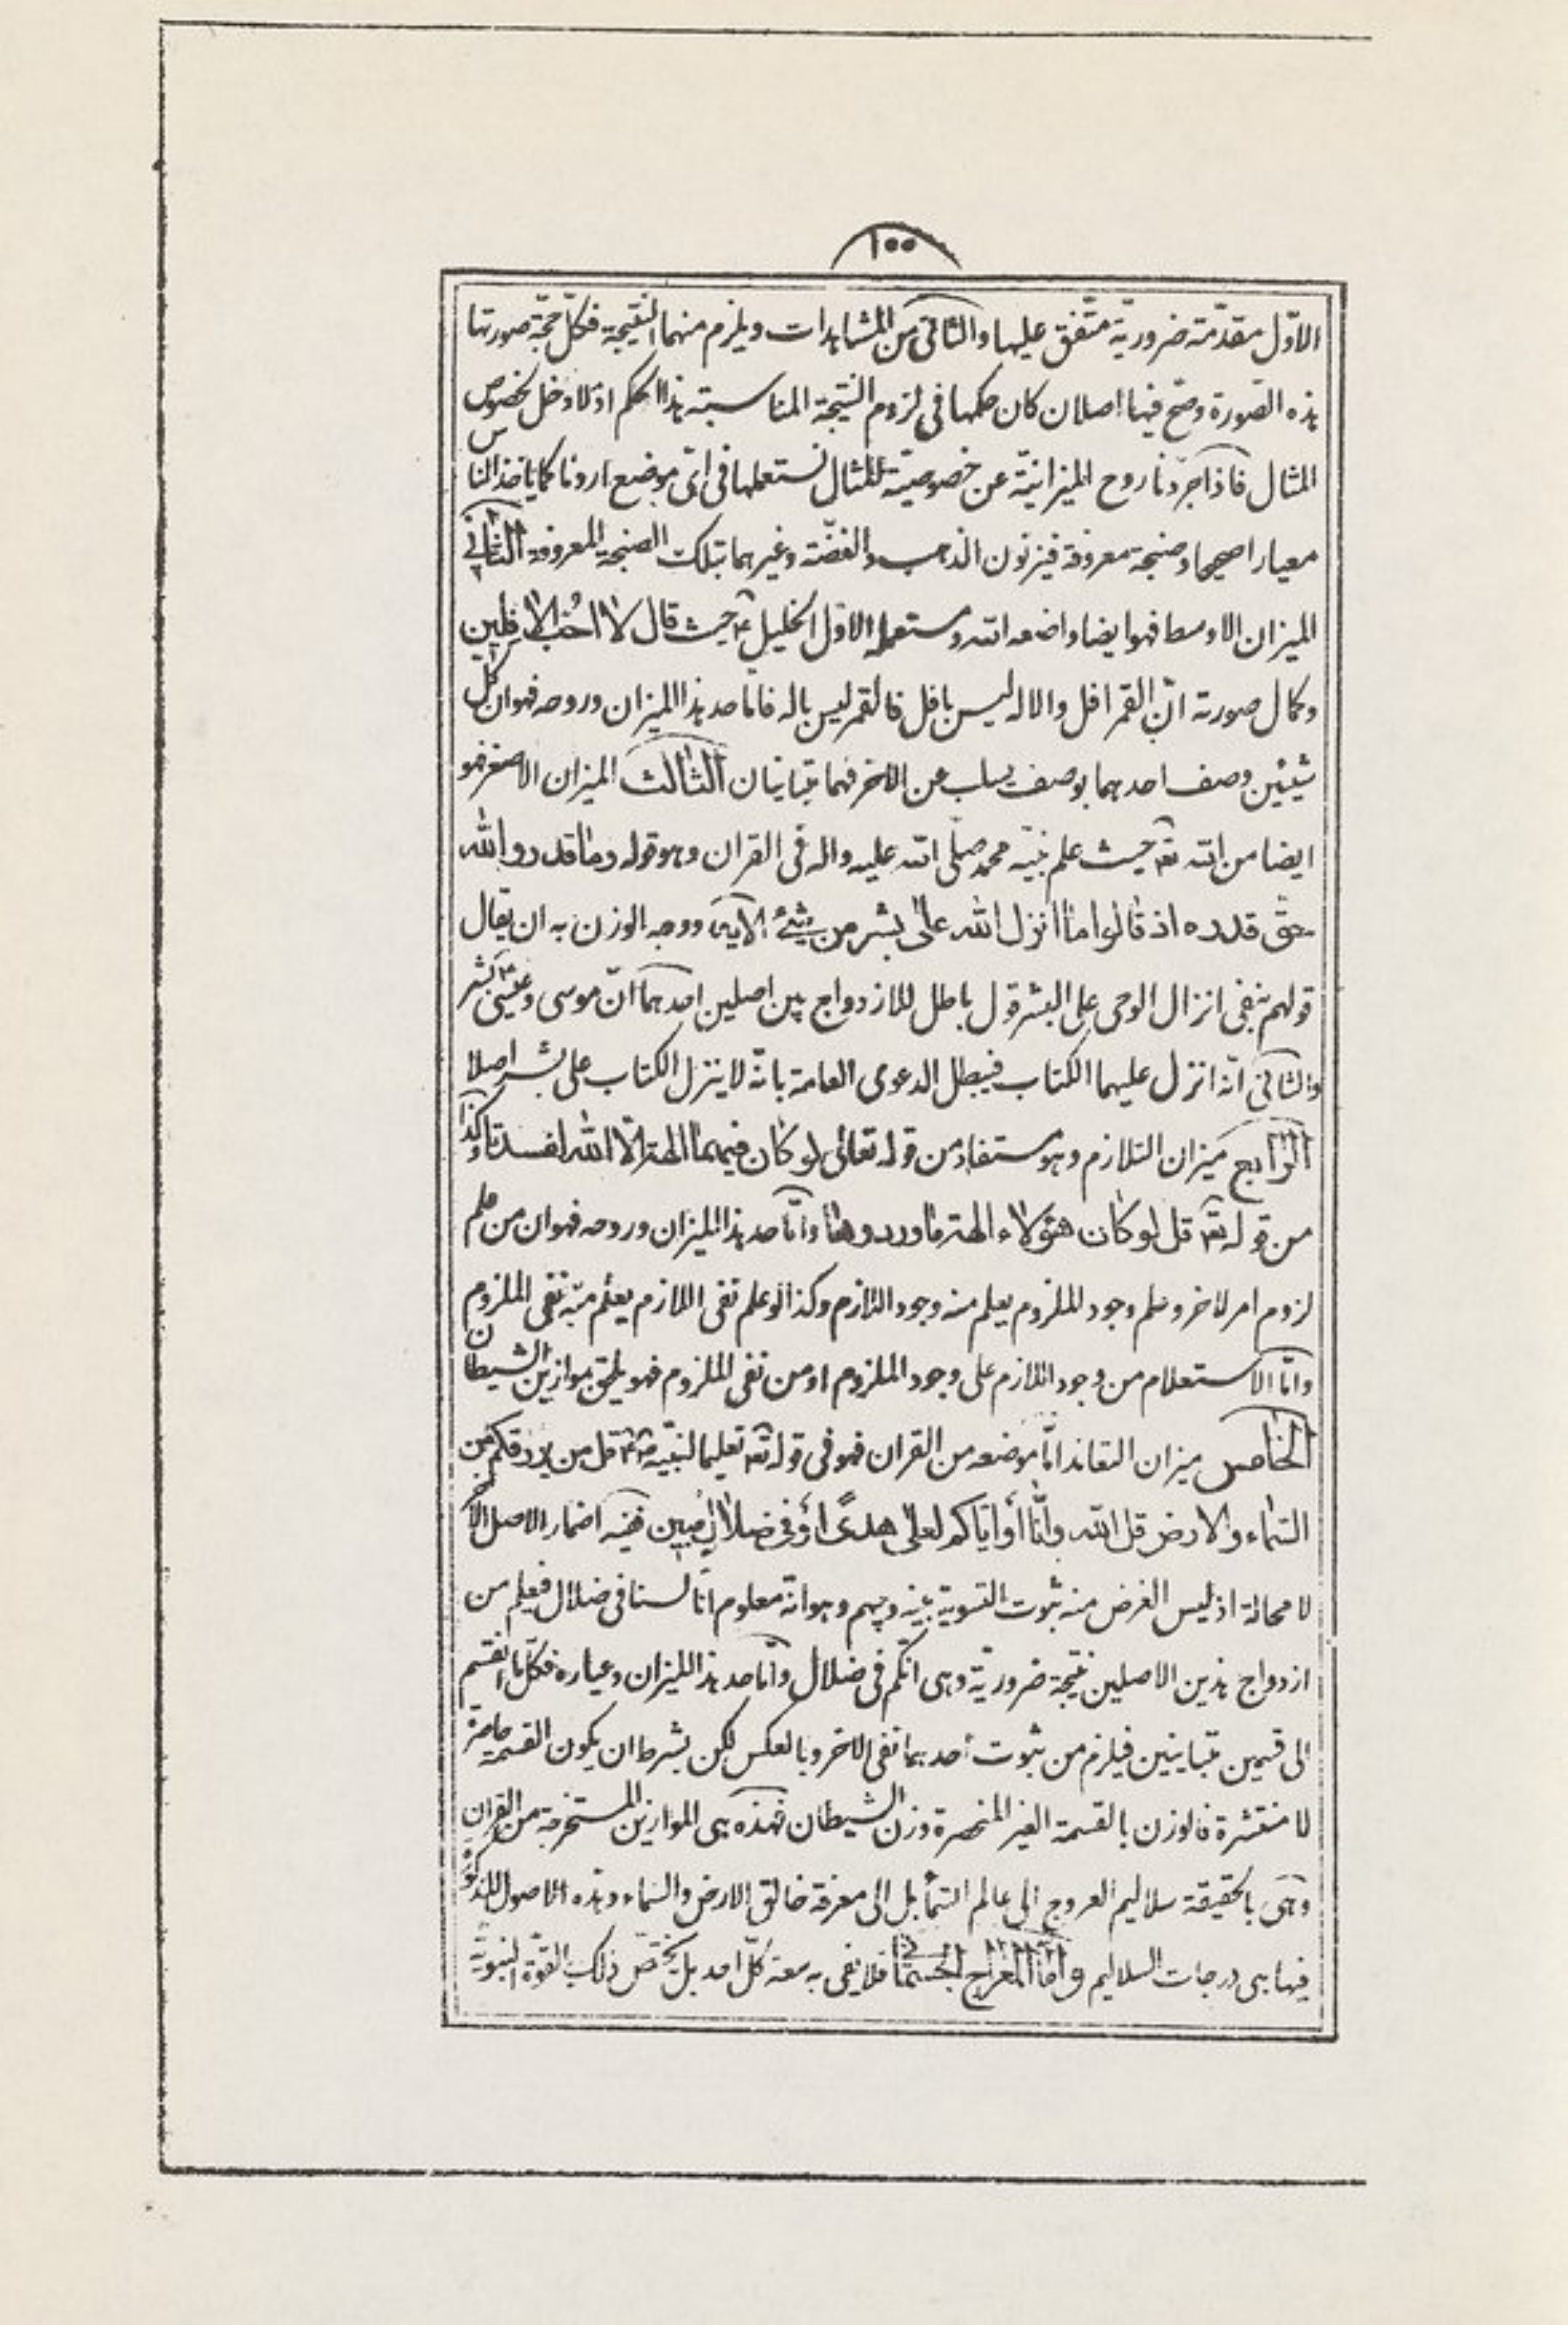 ١٠٠
الاوّل مقدّمة ضروريّة متّفق عليها والثانی من المشاهدات ويلزم منهما النتيجة فكلّ حجّة صورتها
هذه الصّورة وصحّ فيها اصلان كان حكمها فی لزوم النتيجة المناسبته هذا الحكم اذ لا دخل لخصوص
المثال فاذا جرّدنا روح الميزانيّة عن خصوصيّة المثال نستعملها فی ایّ موضع اردنا كما ياخذ الناس
معيارا صحيحا وصنجة معروفة فيزنون الذهب والفضّة وغيرهما بتلك الصنجة المعروفة الثانی
الميزان الاوسط فهو ايضا واضعه الله ومستعمله الاوّل الخليل ع حيث قال لا احبّ الافلين
وكمال صورته انّ القمر افل والاله ليس بافل فالقمر ليس باله فامّا حد هذا الميزان وروحه فهو ان كل
شيئين وصف احدهما بوصف يسلب عن الاخر فهما متباينان الثالث الميزان الاصغر فهو
ايضا من الله تع حيث علم نبيّه محمد صلّی الله عليه واله فی القران وهو قوله وما قدروا الله
حقّ قدره اذ قالوا ما انزل الله علی بشر من شیء الاية ووجه الوزن به ان يقال
قولهم بنفی انزال الوحی علی البشر قول باطل للازدواج بين اصلين احدهما انّ موسی وعيسی ع بشر
والثانی انّه انزل عليهما الكتاب فيبطل الدعوی العامة بانّه لا ينزل الكتاب علی بشر اصلا
الرّابع ميزان التلازم وهو مستفاد من قوله تعالی لو كان فيهما الهة الّا الله لفسدتا وكذا
من قوله تع قل لو كان هؤلاء الهة ما وردوها وامّا حد هذا الميزان وروحه فهو ان من علم
لزوم امر لاخر وعلم وجود الملزوم يعلم منه وجود اللازم وكذا لو علم نفی اللازم يعلم منه نفی الملزوم
وامّا الاستعلام من وجود اللازم علی وجود الملزوم او من نفی الملزوم فهو يلحق بموازين الشيطان
الخامس ميزان التعاند امّا موضعه من القران فهو فی قوله تع تعليما لنبيّه ص قل من يرزقكم من
السّماء والارض قل الله وانّا او ايّاكم لعلی هدی او فی ضلال مبين ففيه اضمار الاصل الاخر
لا محالة اذ ليس الغرض منه ثبوت التسوية بينه وبينهم وهو انّه معلوم انّا لسنا فی ضلال فيعلم من
ازدواج هذين الاصلين نتيجة ضروريّة وهی انّكم فی ضلال وامّا حد هذا الميزان وعياره فكلّ ما انقسم
الی قسمين متباينين فيلزم من ثبوت احدهما نفی الاخر وبالعكس لكن بشرط ان يكون القسمة حاصرة
لا منتشرة فالوزن بالقسمة الغير المنحصرة وزن الشيطان فهذه هی الموازين المستخرجة من القران
وهی بالحقيقة سلاليم العروج الی عالم السّماء بل الی معرفة خالق الارض والسّماء وهذه الاصول المذكورة
فيها هی درجات السلاليم وامّا المعراج الجسمانی فلا يفی به سعة كلّ احد بل يختصّ ذلك القوّة النبويّة